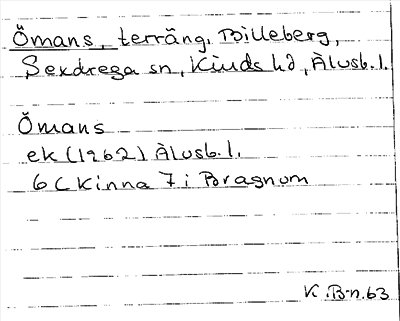 Ömans, terräng, Billeberg,
Sexdrega sn, Kinds hd, Älvsb. l.
Ömans
ek (1962) Älvsb. l.
6 C Kinna 7 i Bragnum
K. B-n. 63